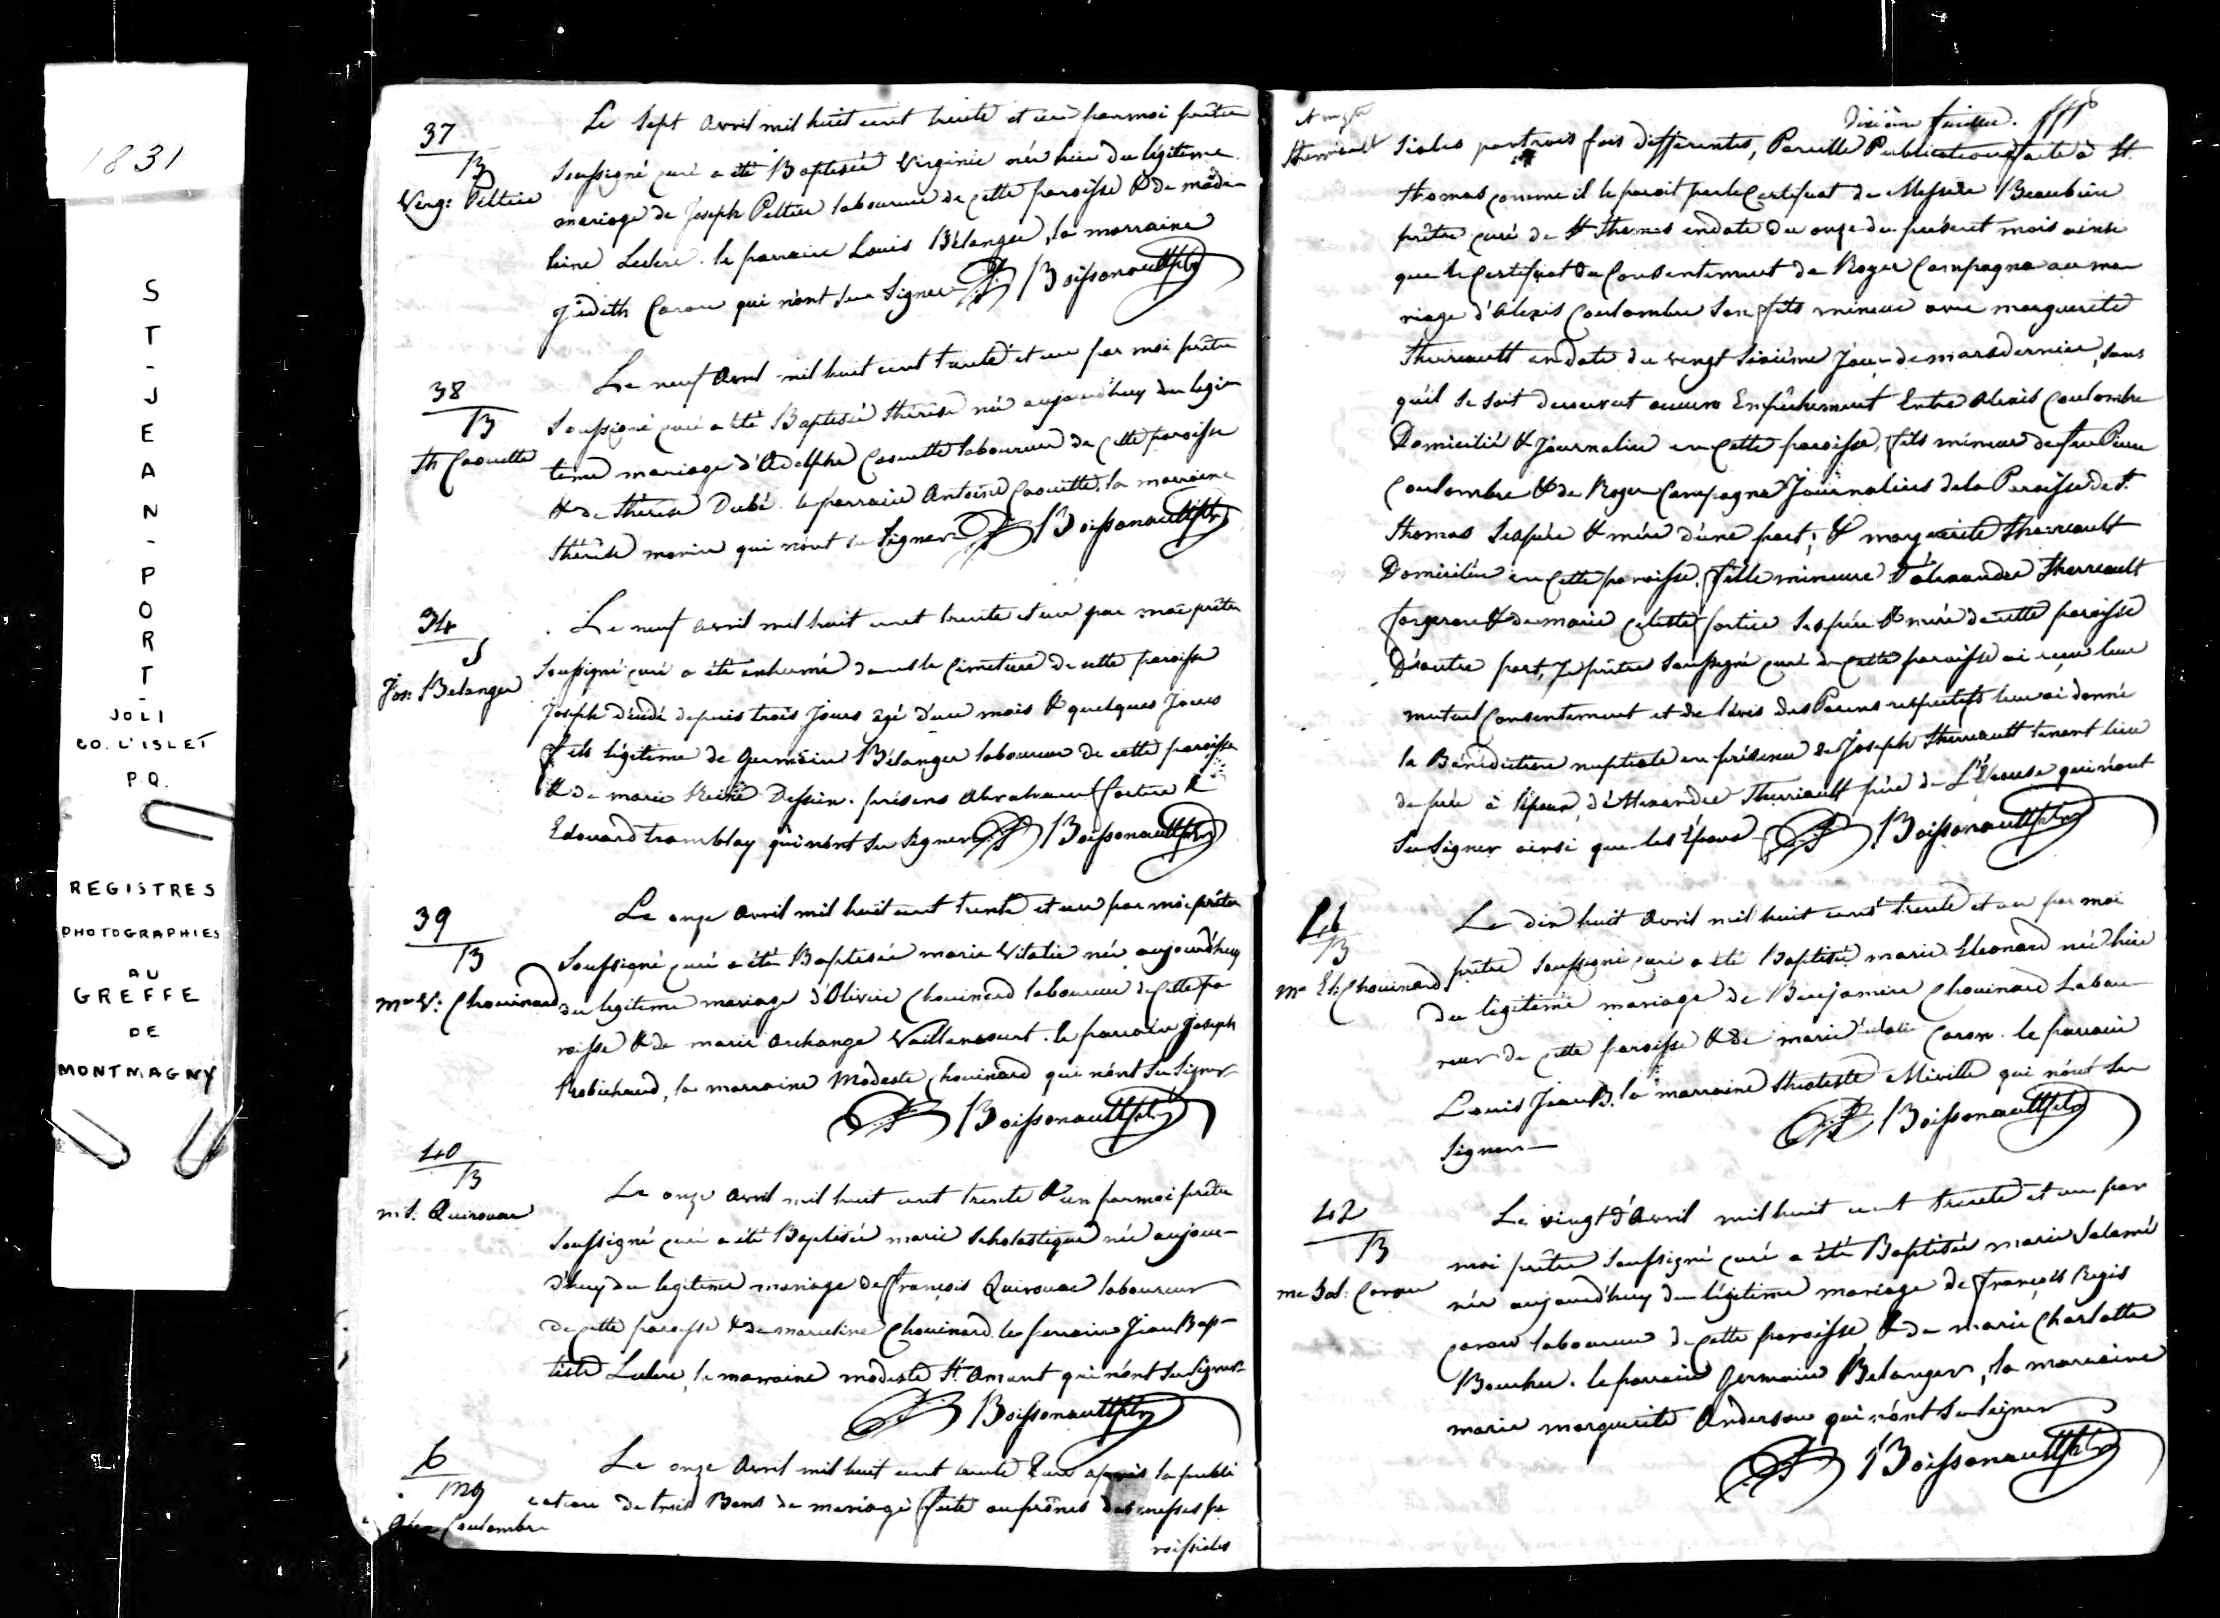 1831
S
T
-
J
E
A
N
-
P
O
R
T
-
JOLI
CO. L'ISLET
P.Q.
REGISTRES
PHOTOGRAPHIES
AU
GREFFE
DE
MONTMAGNY
37
B
Virg: Peltier
Le sept avril mil huit cent trente et un par moi prêtre
soussigné curé a été Baptisée Virginie née hier du légitime
mariage de Joseph Peltier laboureur de cette paroisse & de made-
leine Leclerc. le parrain Louis Bélanger, la marraine
Judith Caron qui n'ont su signer Boissonnault ptre
38
B
Th Caouette
Le neuf avril mil huit cent trente et un par moi prêtre
soussigné curé a été Baptisée thérèse née aujourd'huy du legi-
time mariage d'Adolphe Caouette laboureur de cette paroisse
& de thérèse Dubé. le parrain Antoine Caouette, la marraine
thérèse morin qui n'ont su signer Boissonnault ptre
34
S
Jos: Belanger
Le neuf avril mil huit cent trente et un par moi prêtre
soussigné curé a été enhumé dans le cimetiere de cette paroisse
Joseph décédé depuis trois jours âgé d'un mois & quelques jours
fils légitime de Germain Bélanger laboureur de cette paroisse
& de marie Reine Dessein. présens Abraham fortier &
Edouard tremblay qui n'ont su signer Boissonnault ptre
39
B
Me V: Chouinard
Le onze avril mil huit cent trente et un par moi prêtre
soussigné curé a été Baptisée marie Vitalie née aujourd'huy
du legitime mariage d'Olivier Chouinard laboureur de cette pa
roisse & de marie archange Vaillancourt. le parrain Joseph
Robichaud, la marraine Modeste Chouinard qui n'ont su signer
Boissonnault ptre
40
B
m S. Quirouac
Le onze avril mil huit cent trente & un par moi prêtre
soussigné curé a été Baptisée marie scholastique née aujour-
d'huy du legitime mariage de françois Quirouac laboureur
de cette paroisse & de marceline Chouinard. le parrain Jean Bap-
tiste Leclerc, la marraine modeste St. Amant qui n'ont su signer
Boissonnault ptre
6
mg
Alex Coulombe
Le onze avril mil huit cent trente & un après la publi
cation de trois Bans de mariage faite au prônes des messes pa
roissiales
& mgte
Therriault
Dixième feuillet.
siales par trois fois differentes, Pareille Publication faite à St.
thomas comme il le paroit par le Certificat de Messire Beaubien
prêtre curé de St thomas en date du onze du présent mois ainsi
que le certificat du Consentement de Roger Campagna au ma
riage d'Alexis Coulombe son fils mineur avec marguerite
Therriault en date du vingt sixième jour de mars dernier, sans
qu'il se soit decouvert aucun Empêchement Entre Alexis Coulombe
Domicilié & Journalier en cette paroisse, fils mineur de feu Pierre
Coulombe & de Roger Campagna Journaliers de la Paroisse de St.
Thomas ses père & mère d'une part; & marguerite Therriault
Domiciliée en cette paroisse, fille mineure d'alexandre Therreault
forgeron & de marie Celeste fortier ses père & mère de cette paroisse
D'autre part, Je prêtre soussigné curé de cette paroisse ai reçu leur
mutuel Consentement et de l'avis des Parens respectifs leur ai donné
la Bénédiction nuptiale en présence de Joseph Therriault tenant lieu
de père à l'époux, d'Alexandre Therriault père de L'Épouse qui n'ont
su signer ainsi que les Époux Boissonnault ptre
41
B
Me El: Chouinard
Le dix huit avril mil huit cent trente et un par moi
prêtre soussigné curé a été Baptisée marie Eleonard née hier
du légitime mariage de Benjamin Chouinard Labou-
reur de cette paroisse & de marie Caron. le parrain
Louis Jean B. la marraine Miville qui n'ont su
signer Boissonnault ptre
42
B
me Sal: Caron
Le vingt d'Avril mil huit cent trente et un par
moi prêtre soussigné curé a été Baptisée marie Salomé
née aujourd'huy du légitime mariage de françois Regis
Caron laboureur de cette paroisse & de marie Charlotte
Boucher. le parrain Germain Belanger, la marraine
marie marguerite Anderson qui n'ont su signer
Boissonnault ptre